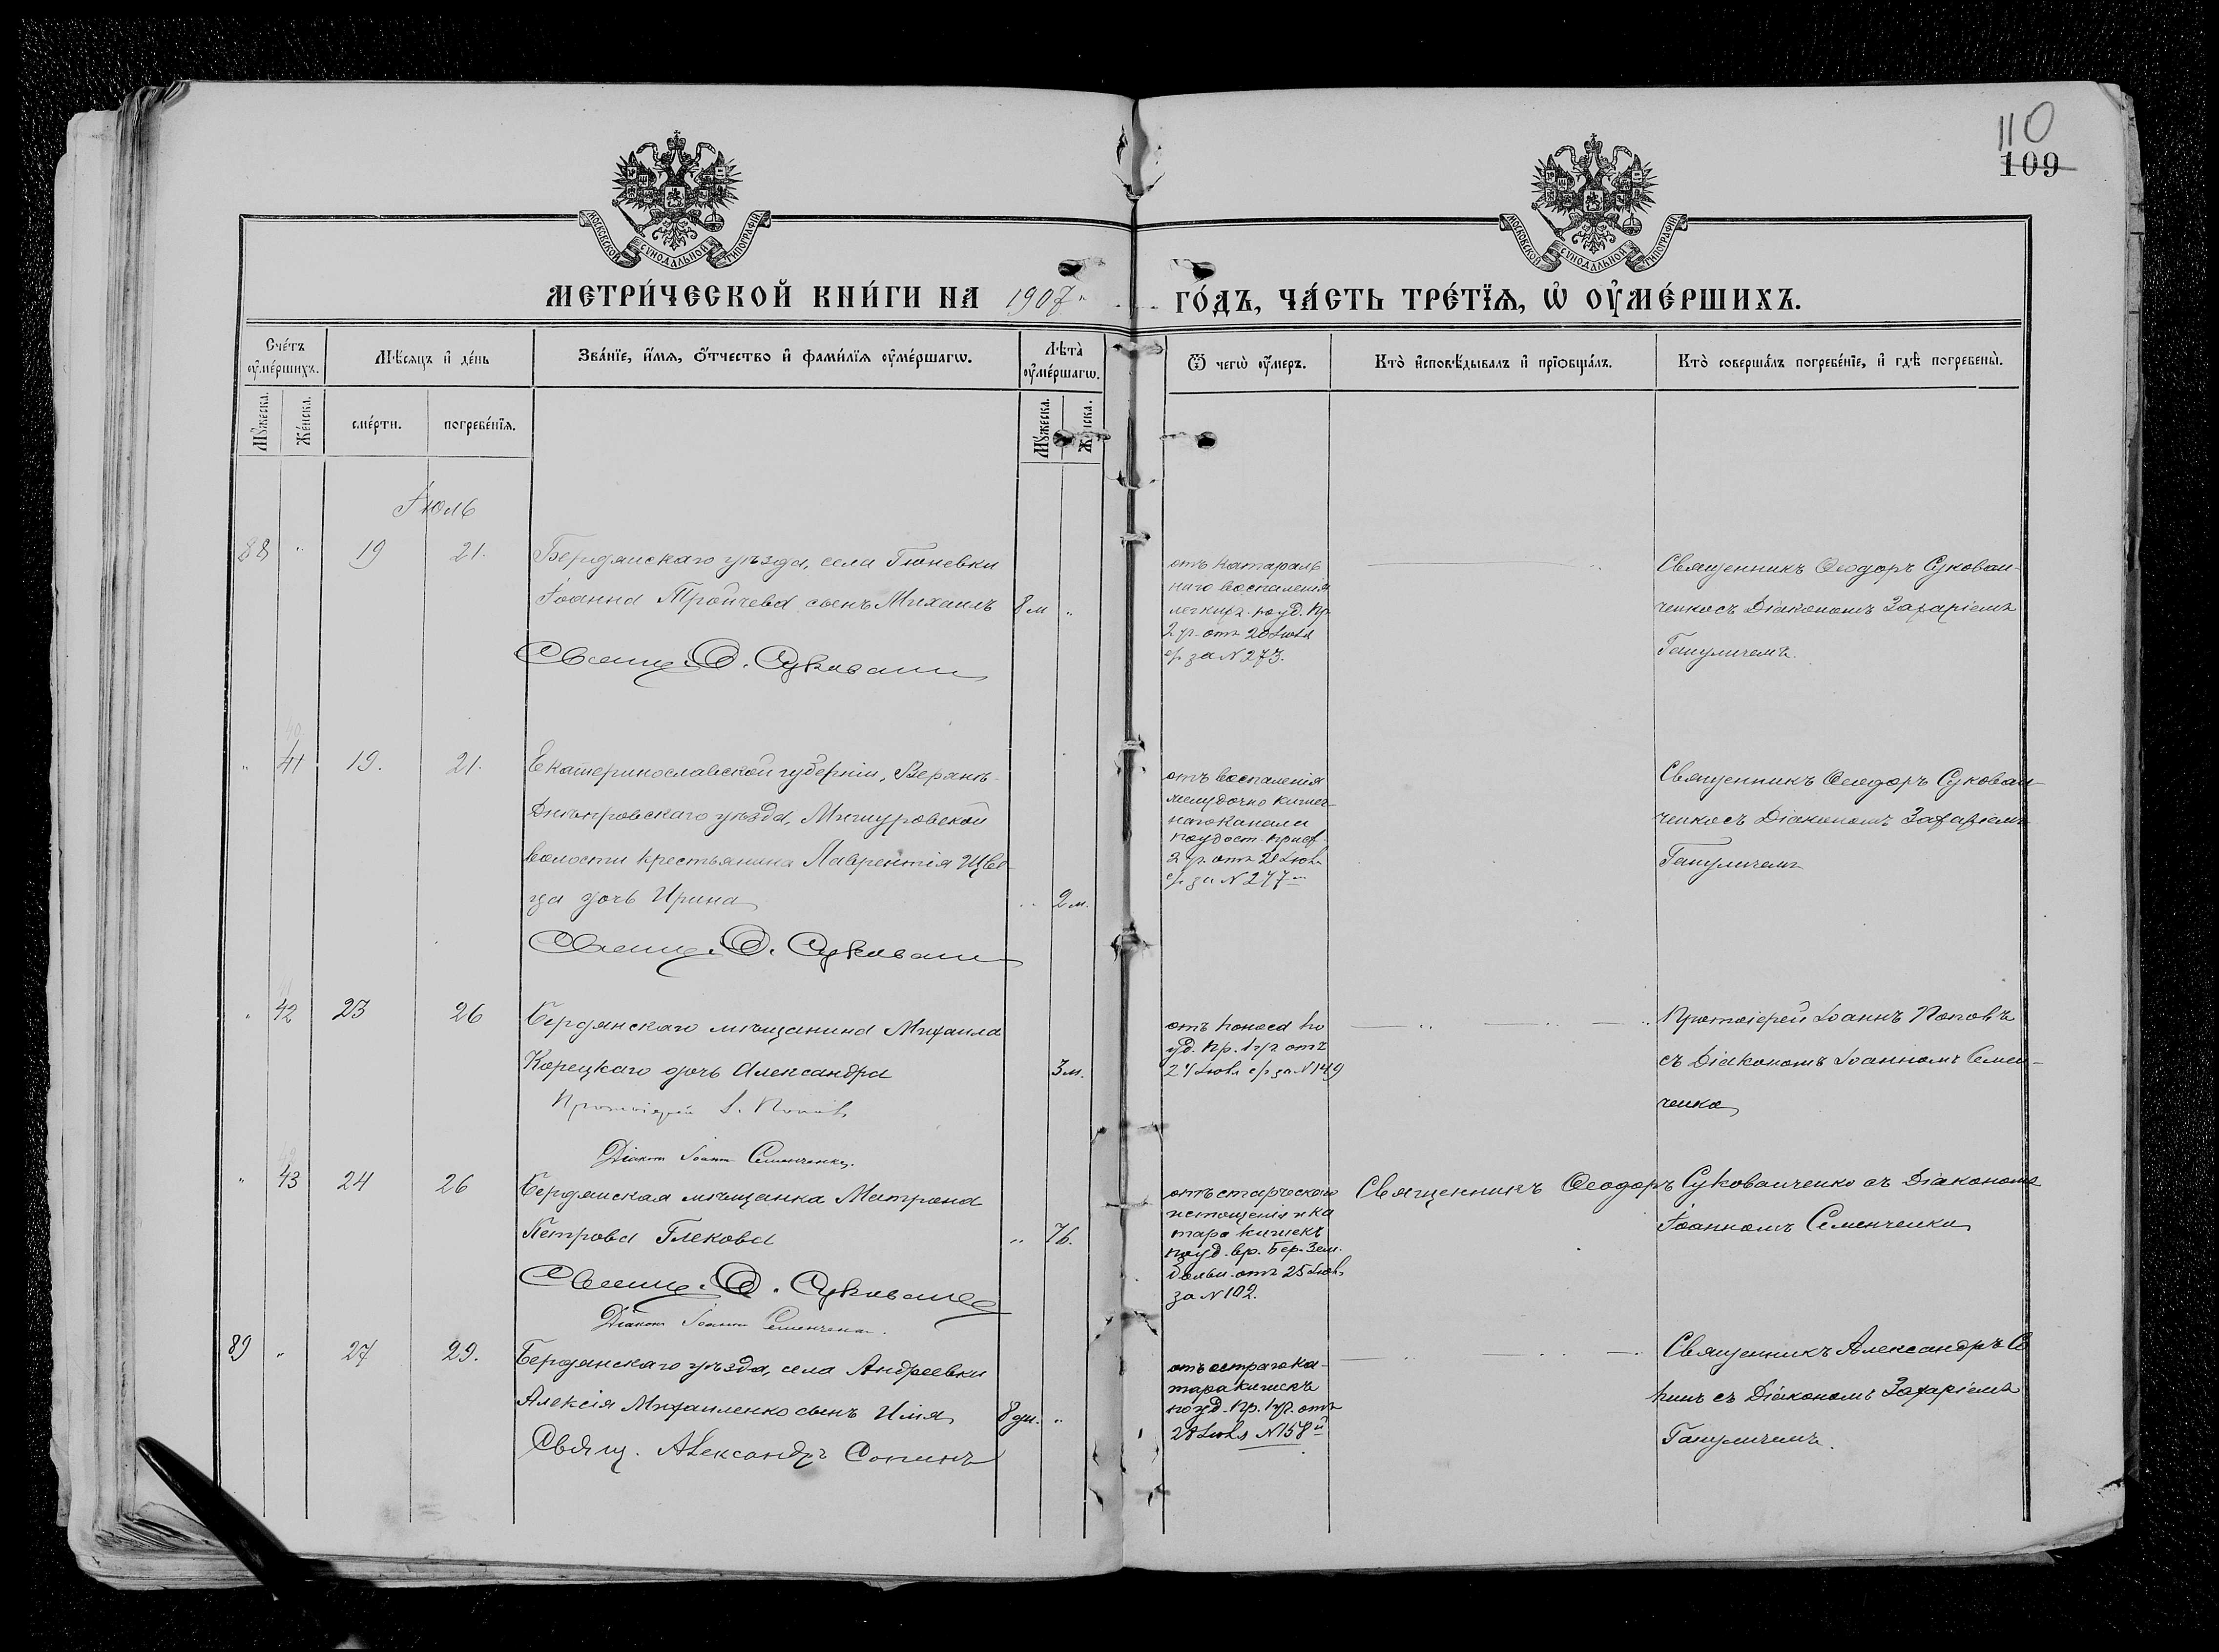 110
109
МОСКОВСКОЙ СѴНОДАЛЬНОЙ ТИПОГРАФІИ
МОСКОВСКОЙ СѴНОДАЛЬНОЙ ТИПОГРАФІИ
МЕТРИ́ЧЕСКОЙ КНИ́ГИ НА 1907 ГО́ДЪ, ЧА́СТЬ ТРЕ́ТЇѦ, Ѡ҆ ОУ҆МЕ́РШИХЪ.
Сче́тъ оу҆ме́ршихъ.
Мѣ́сѧцъ и҆ де́нь
Зва́нїе, и҆́мѧ, ѻ҆́тчество и҆ фами́лїѧ оу҆ме́ршагѡ.
Лѣ́та оу҆ме́ршагѡ.
Ѿ чегѡ̀ оу҆́меръ.
Кто̀ и҆сповѣ́дывалъ и҆ прїѡбща́лъ.
Кто̀ соверша́лъ погребе́нїе, и҆ гдѣ̀ погребены̀.
Мꙋ́жеска.
Же́нска.
сме́рти.
погребе́нїѧ.
Мꙋ́жеска.
Же́нска.
Іюль
88 " 19 21.
Бердянскаго уѣзда, села Гюневки
Іоанна Тройчева сынъ Михаилъ 8 м "
Свящ. Ѳ. Сукованч
отъ катараль
наго воспаленія
легкихъ. по уд. пр.
2 уч. отъ 20 Іюля
с/г за N 273.
Священникъ Ѳеодоръ Сукован-
ченко съ Діакономъ Захаріемъ
Гануличемъ.
" 41 19. 21.
Екатеринославской губерніи, Верхнѣ-
Днѣпровскаго уѣзда, Мишуровской
волости крестьянина Лаврентія
дочь Ирина " 2 м.
Свящ. Ѳ. Сукованч
отъ воспаленія
желудочно кишеч-
наго канала
по удост.
2 уч. отъ 20 Іюля
с/г за N 277
Священникъ Ѳеодоръ Сукован-
ченко съ Діакономъ Захаріемъ
Гануличемъ
" 42 23 26
Бердянскаго мѣщанина Михаила
Корецкаго дочь Александра 3 м.
Протоіерей І. Поповъ
Діаконъ Іоаннъ Семенченко.
отъ поноса по
уд. пр. 1 уч. отъ
24 Іюля с/г за N 149
Протоіерей Іоаннъ Поповъ
съ Діакономъ Іоанномъ Семен-
ченко
" 43 24 26
Бердянская мѣщанка Матрона
Петрова Глекова " 76.
Свящ. Ѳ. Сукованче
Діаконъ Іоаннъ Семенченко.
отъ старческаго
истощенія и ка
тара кишекъ
по уд. вр. Бер. Зем.
больн. отъ 25 Іюля
за N 102.
Священникъ Ѳеодоръ Сукованченко съ Діакономъ
Іоанномъ Семенченко
89 " 27 29.
Бердянскаго уѣзда, села Андреевки
Алексія Михайленко сынъ Илія 8 дн. "
Свящ. Александръ Сопинъ
отъ остраго ка-
тара кишекъ
по уд. пр. 1 уч. отъ
28 Іюля N 158
Священникъ Александръ Со
пинъ съ Діакономъ Захаріемъ
Гануличемъ.